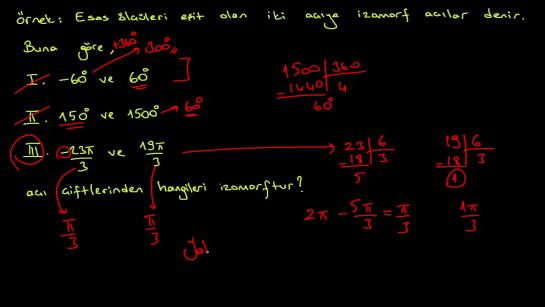 Örnek: Esas ölçüleri eşit olan iki açıya izomorf açılar denir.
Buna göre,
+360° 300°
I. -60° ve 60°
II. 150° ve 1500° → 60°
III. -23π/3 ve 19π/3
açı çiftlerinden hangileri izomorftur?
π/3 π/3
Yal
1500 | 360
-1440 | 4
60°
23 | 6
-18 | 3
5
19 | 6
-18 | 3
1
2π - 5π/3 = π/3
1π/3